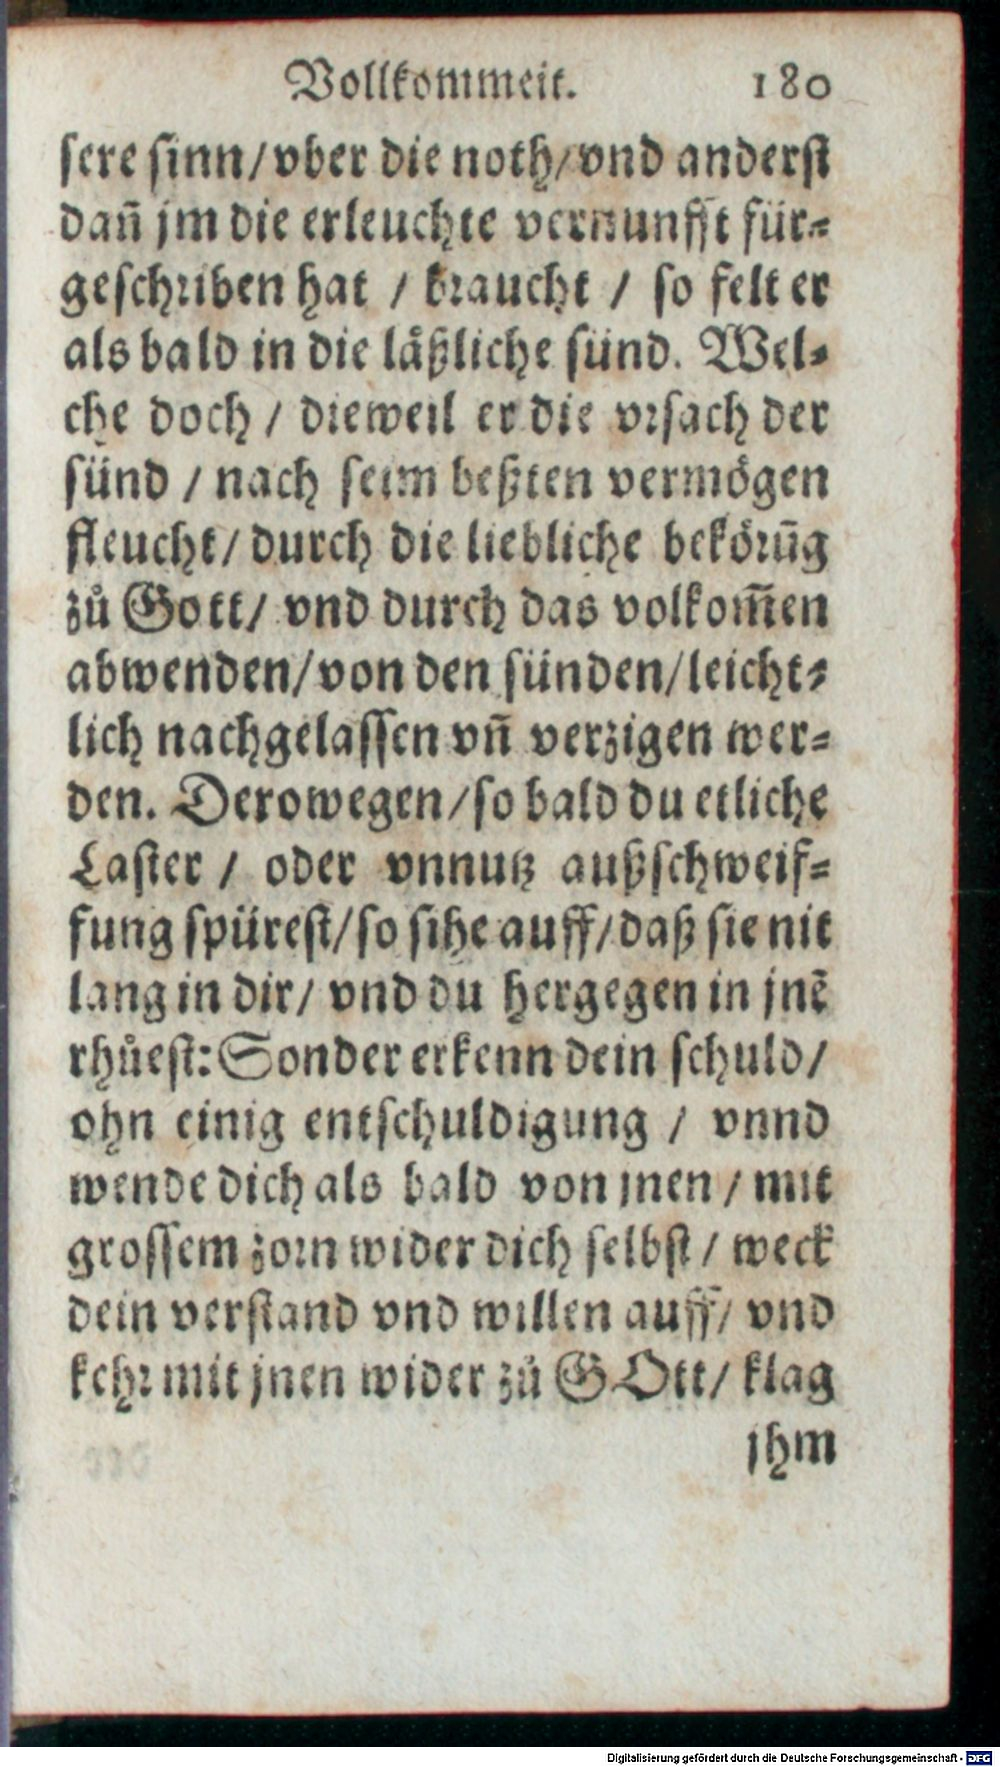 Vollkommeit. 180
sere sinn/vber die noth/vnd anderst
dañ jm die erleuchte vernunfft für-
geschriben hat / braucht / so felt er
als bald in die läßliche sünd. Wel-
che doch / dieweil er die vrsach der
sünd / nach seim beßten vermögen
fleucht/ durch die liebliche bekörūg
zů Gott/ vnd durch das volkom̄en
abwenden/von den sünden/leicht-
lich nachgelassen vn̄ verzigen wer-
den. Derowegen/so bald du etliche
Laster / oder vnnutz außschweif-
fung spürest/so sihe auff/daß sie nit
lang in dir/ vnd du hergegen in jnē
rhůest: Sonder erkenn dein schuld/
ohn einig entschuldigung / vnnd
wende dich als bald von jnen / mit
grossem zorn wider dich selbst / weck
dein verstand vnd willen auff/ vnd
kehr mit jnen wider zů GOtt/ klag
jhm
Digitalisierung gefördert durch die Deutsche Forschungsgemeinschaft - DFG